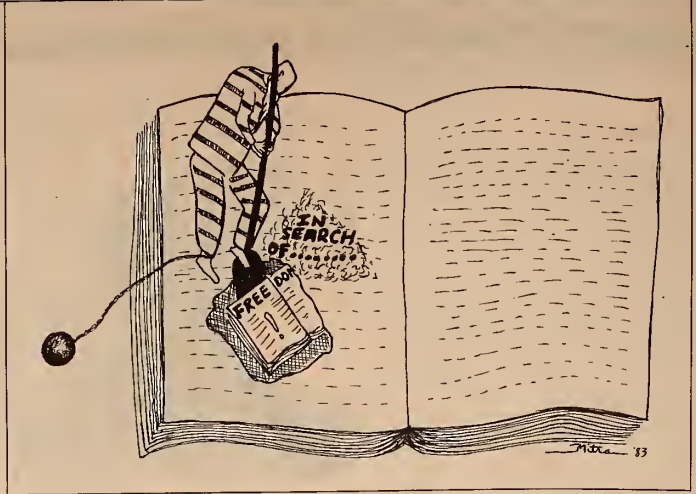 IN
SEARCH
OF........
FREE DOM
!
Mitra '83